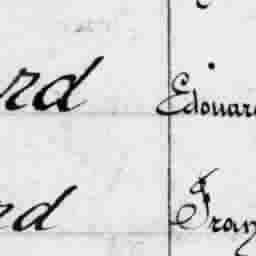 rd Edouar
d Fran